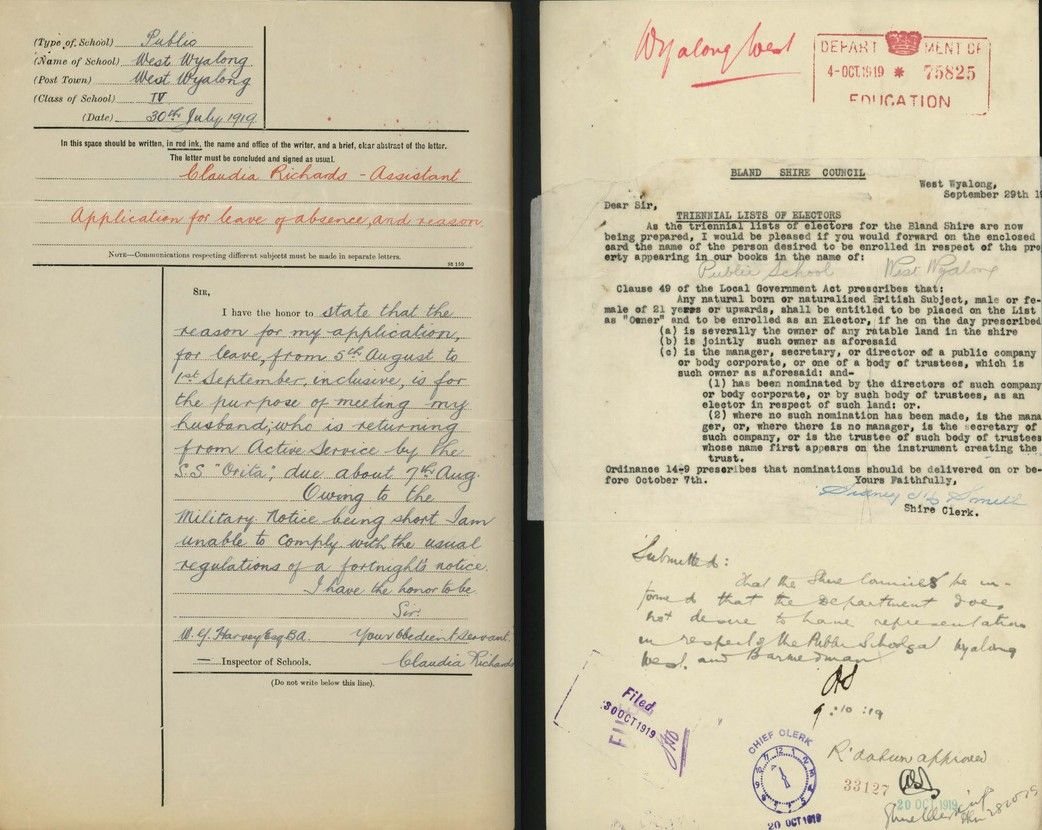 (Type of School) Public
(Name of School) West Wyalong
(Post Town) West Wyalong
(Class of School) IV
(Date) 30th July, 1919.
In this space should be written, in red ink, the name and office of the writer, and a brief, clear abstract of the letter.
The letter must be concluded and signed as usual.
Claudia Richards - Assistant
Application for leave of absence, and reason
NOTE—Communications respecting different subjects must be made in separate letters.
SIR,
I have the honor to state that the
reason for my application,
for leave, from 5th August to
1st September, inclusive, is for
the purpose of meeting my
husband, who is returning
from Active Service by the
S.S "Orita", due about 7th Aug.
Owing to the
Military Notice being short I am
unable to comply with the usual
regulations of a fortnight's notice.
I have the honor to be
Sir:
W. G. Harvey Esq BA. Your obedient servant
Inspector of Schools. Claudia Richards
(Do not write below this line).
Wyalong West
DEPARTMENT OF
4-OCT.1919 * 75825
EDUCATION
BLAND SHIRE COUNCIL
West Wyalong,
September 29th 19
Dear Sir,
TRIENNIAL LISTS OF ELECTORS
As the triennial lists of electors for the Bland Shire are now
being prepared, I would be pleased if you would forward on the enclosed
card the name of the person desired to be enrolled in respect of the pro
erty appearing in our books in the name of:
Public School West Wyalong
Clause 49 of the Local Government Act prescribes that:
Any natural born or naturalised British Subject, male or fe-
male of 21 years or upwards, shall be entitled to be placed on the List
as "Owner" and to be enrolled as an Elector, if he on the day prescribed
(a) is severally the owner of any ratable land in the shire
(b) is jointly such owner as aforesaid
(c) is the manager, secretary, or director of a public company
or body corporate, or one of a body of trustees, which is
such owner as aforesaid: and-
(1) has been nominated by the directors of such company
or body corporate, or by such body of trustees, as an
elector in respect of such land: or.
(2) where no such nomination has been made, is the mana
ger, or, where there is no manager, is the secretary of
such company, or is the trustee of such body of trustees
whose name first appears on the instrument creating the
trust.
Ordinance 14-9 prescribes that nominations should be delivered on or be-
fore October 7th. Yours Faithfully,
Shire Clerk.
Submitted:
That the Shire Councils be in-
formed that the Department does
not desire to have representation
in respect of the Public Schools at Wyalong
West and Barmedman
9 :10 :19
Filed
30 OCT 1919
CHIEF CLERK
20 OCT 1919
approved
33127
20 OCT 1919